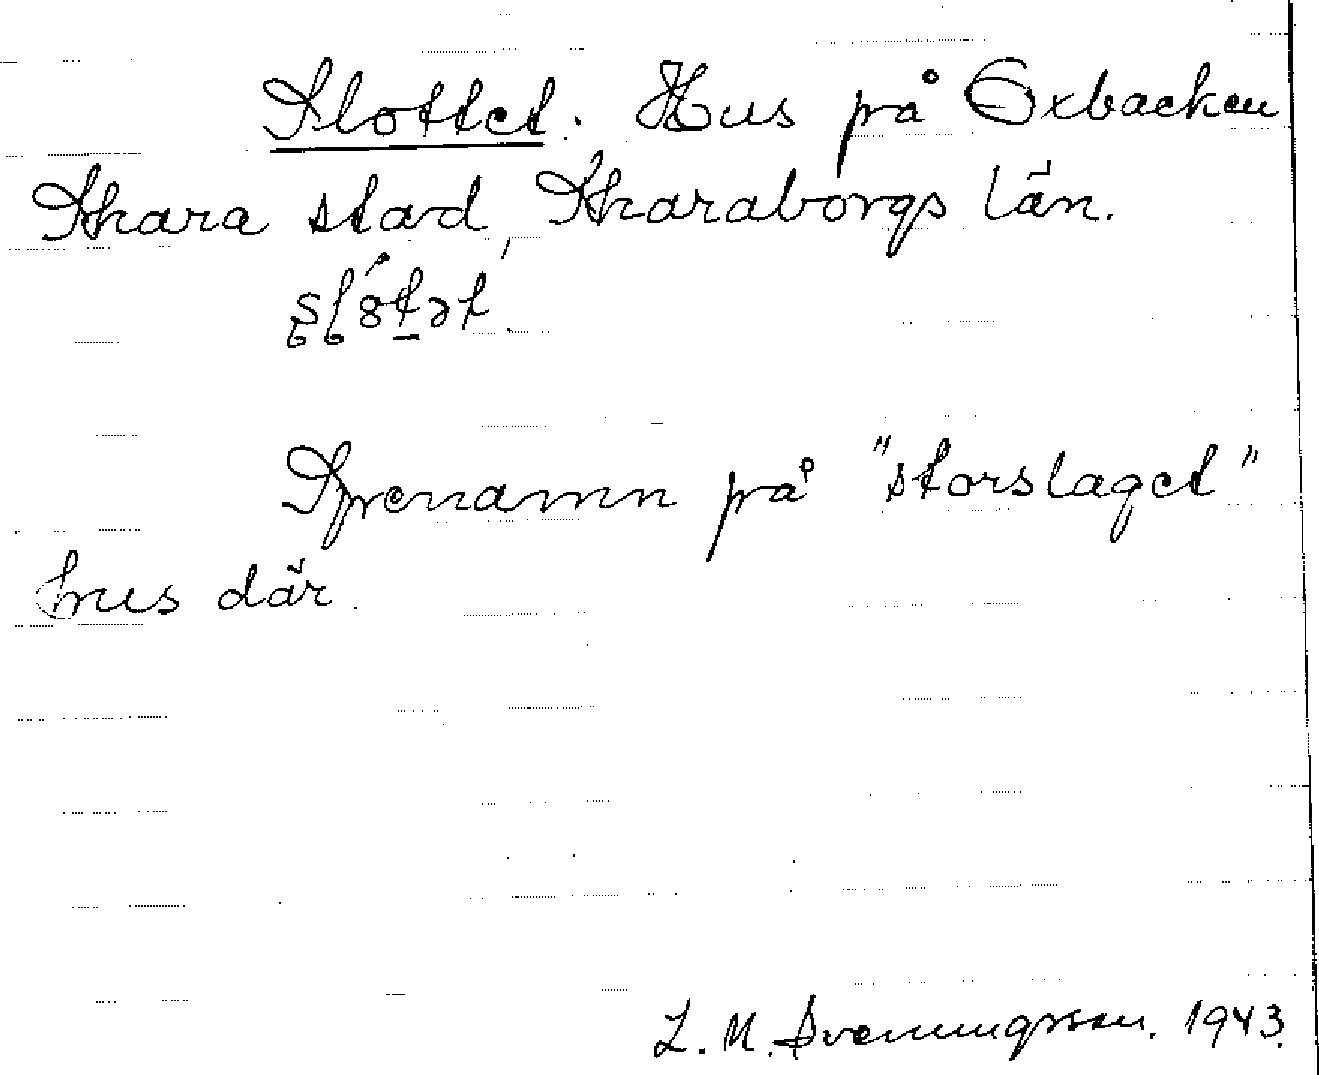 Slottet. Hus på Oxbacken
Skara stad, Skaraborgs län.
Öpenamn på "storslaget"
hus där.
L. M. Svenungsson. 1943.